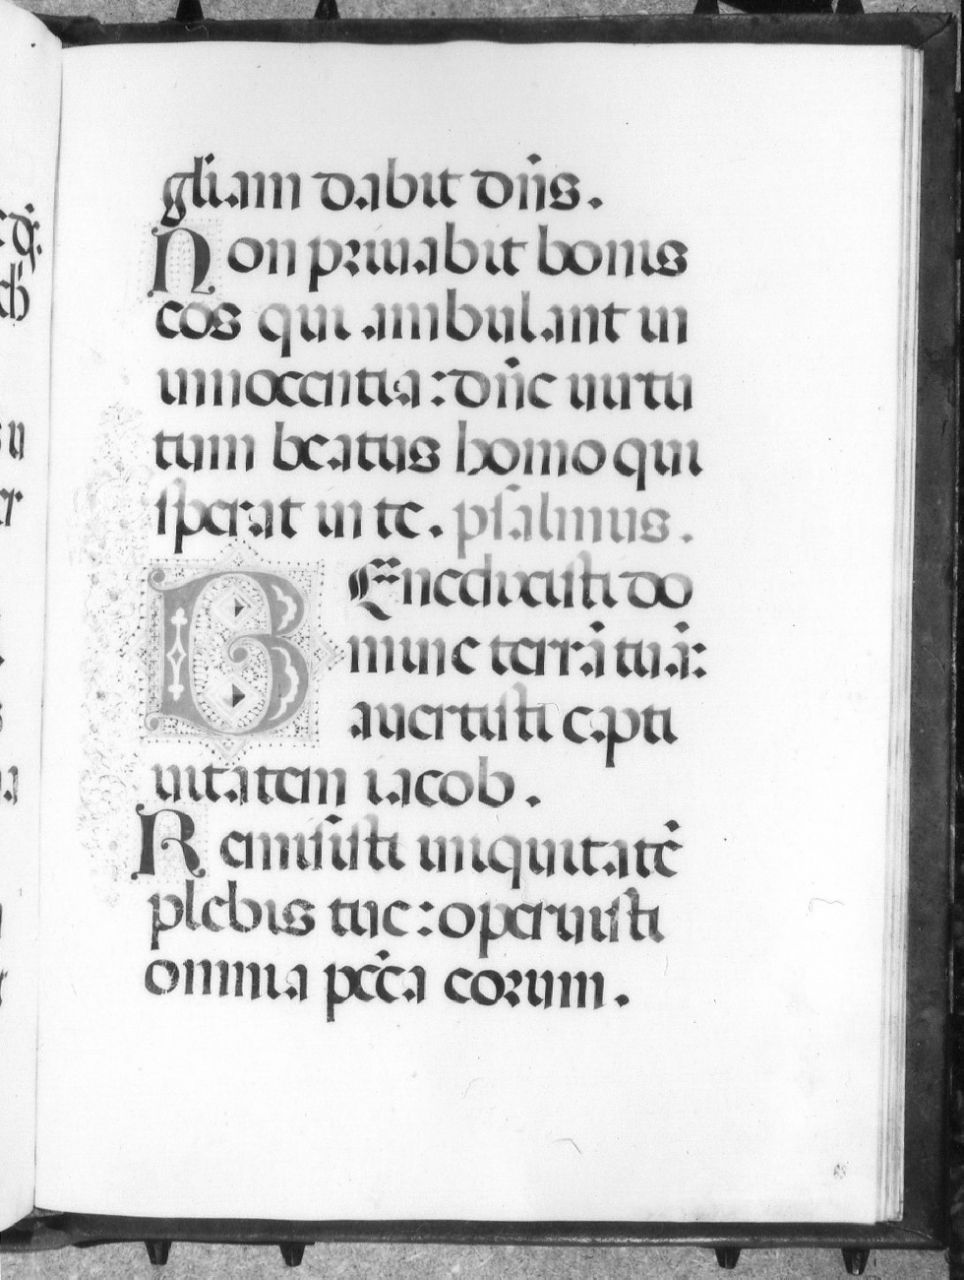 gl̄iam dabit dn̄s.
Non priuabit bonis
eos qui ambulant in
innocentia: dn̄e uirtu
tum beatus homo qui
sperat in te. psalmus.
BEnedixisti do
mine terrā tuā:
auertisti capti
uitatem iacob.
Remisisti iniquitatē
plebis tue: operuisti
omnia pcc̄a eorum.